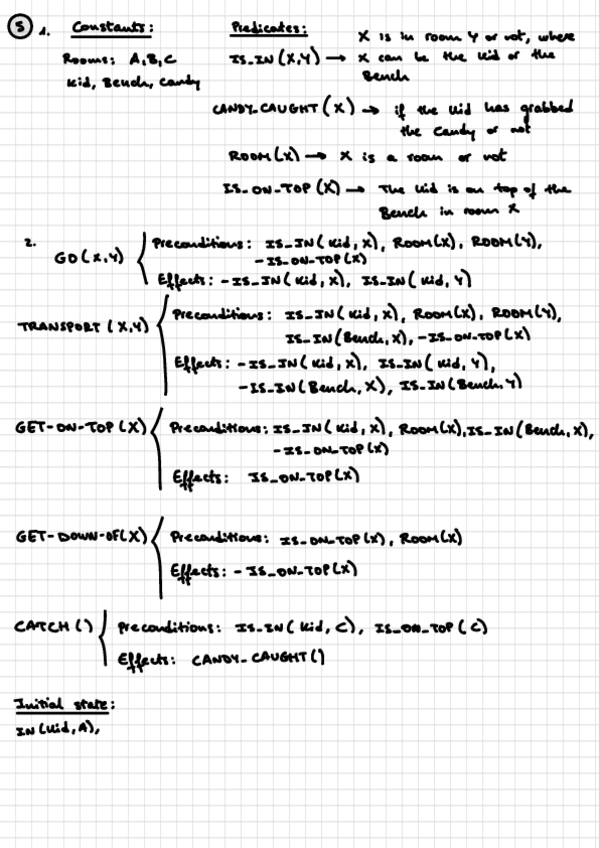 5 1. Constants: Predicates:
Rooms: A, B, C
Kid, Bench, Candy
IS_IN(X,Y) → X is in room Y or not, where
X can be the kid or the
Bench
CANDY_CAUGHT(X) → if the kid has grabbed
the candy or not
ROOM(X) → X is a room or not
IS_ON_TOP(X) → The kid is on top of the
Bench in room X
2.
GO(X,Y) { Preconditions: IS_IN(Kid, X), ROOM(X), ROOM(Y),
-IS_ON_TOP(X)
Effects: -IS_IN(Kid, X), IS_IN(Kid, Y)
TRANSPORT(X,Y) { Preconditions: IS_IN(Kid, X), ROOM(X), ROOM(Y),
IS_IN(Bench, X), -IS_ON_TOP(X)
Effects: -IS_IN(Kid, X), IS_IN(Kid, Y),
-IS_IN(Bench, X), IS_IN(Bench, Y)
GET-ON-TOP(X) { Preconditions: IS_IN(Kid, X), ROOM(X), IS_IN(Bench, X),
-IS_ON_TOP(X)
Effects: IS_ON_TOP(X)
GET-DOWN-OF(X) { Preconditions: IS_ON_TOP(X), ROOM(X)
Effects: -IS_ON_TOP(X)
CATCH() { Preconditions: IS_IN(Kid, C), IS_ON_TOP(C)
Effects: CANDY_CAUGHT()
Initial state:
IN(Kid, A),